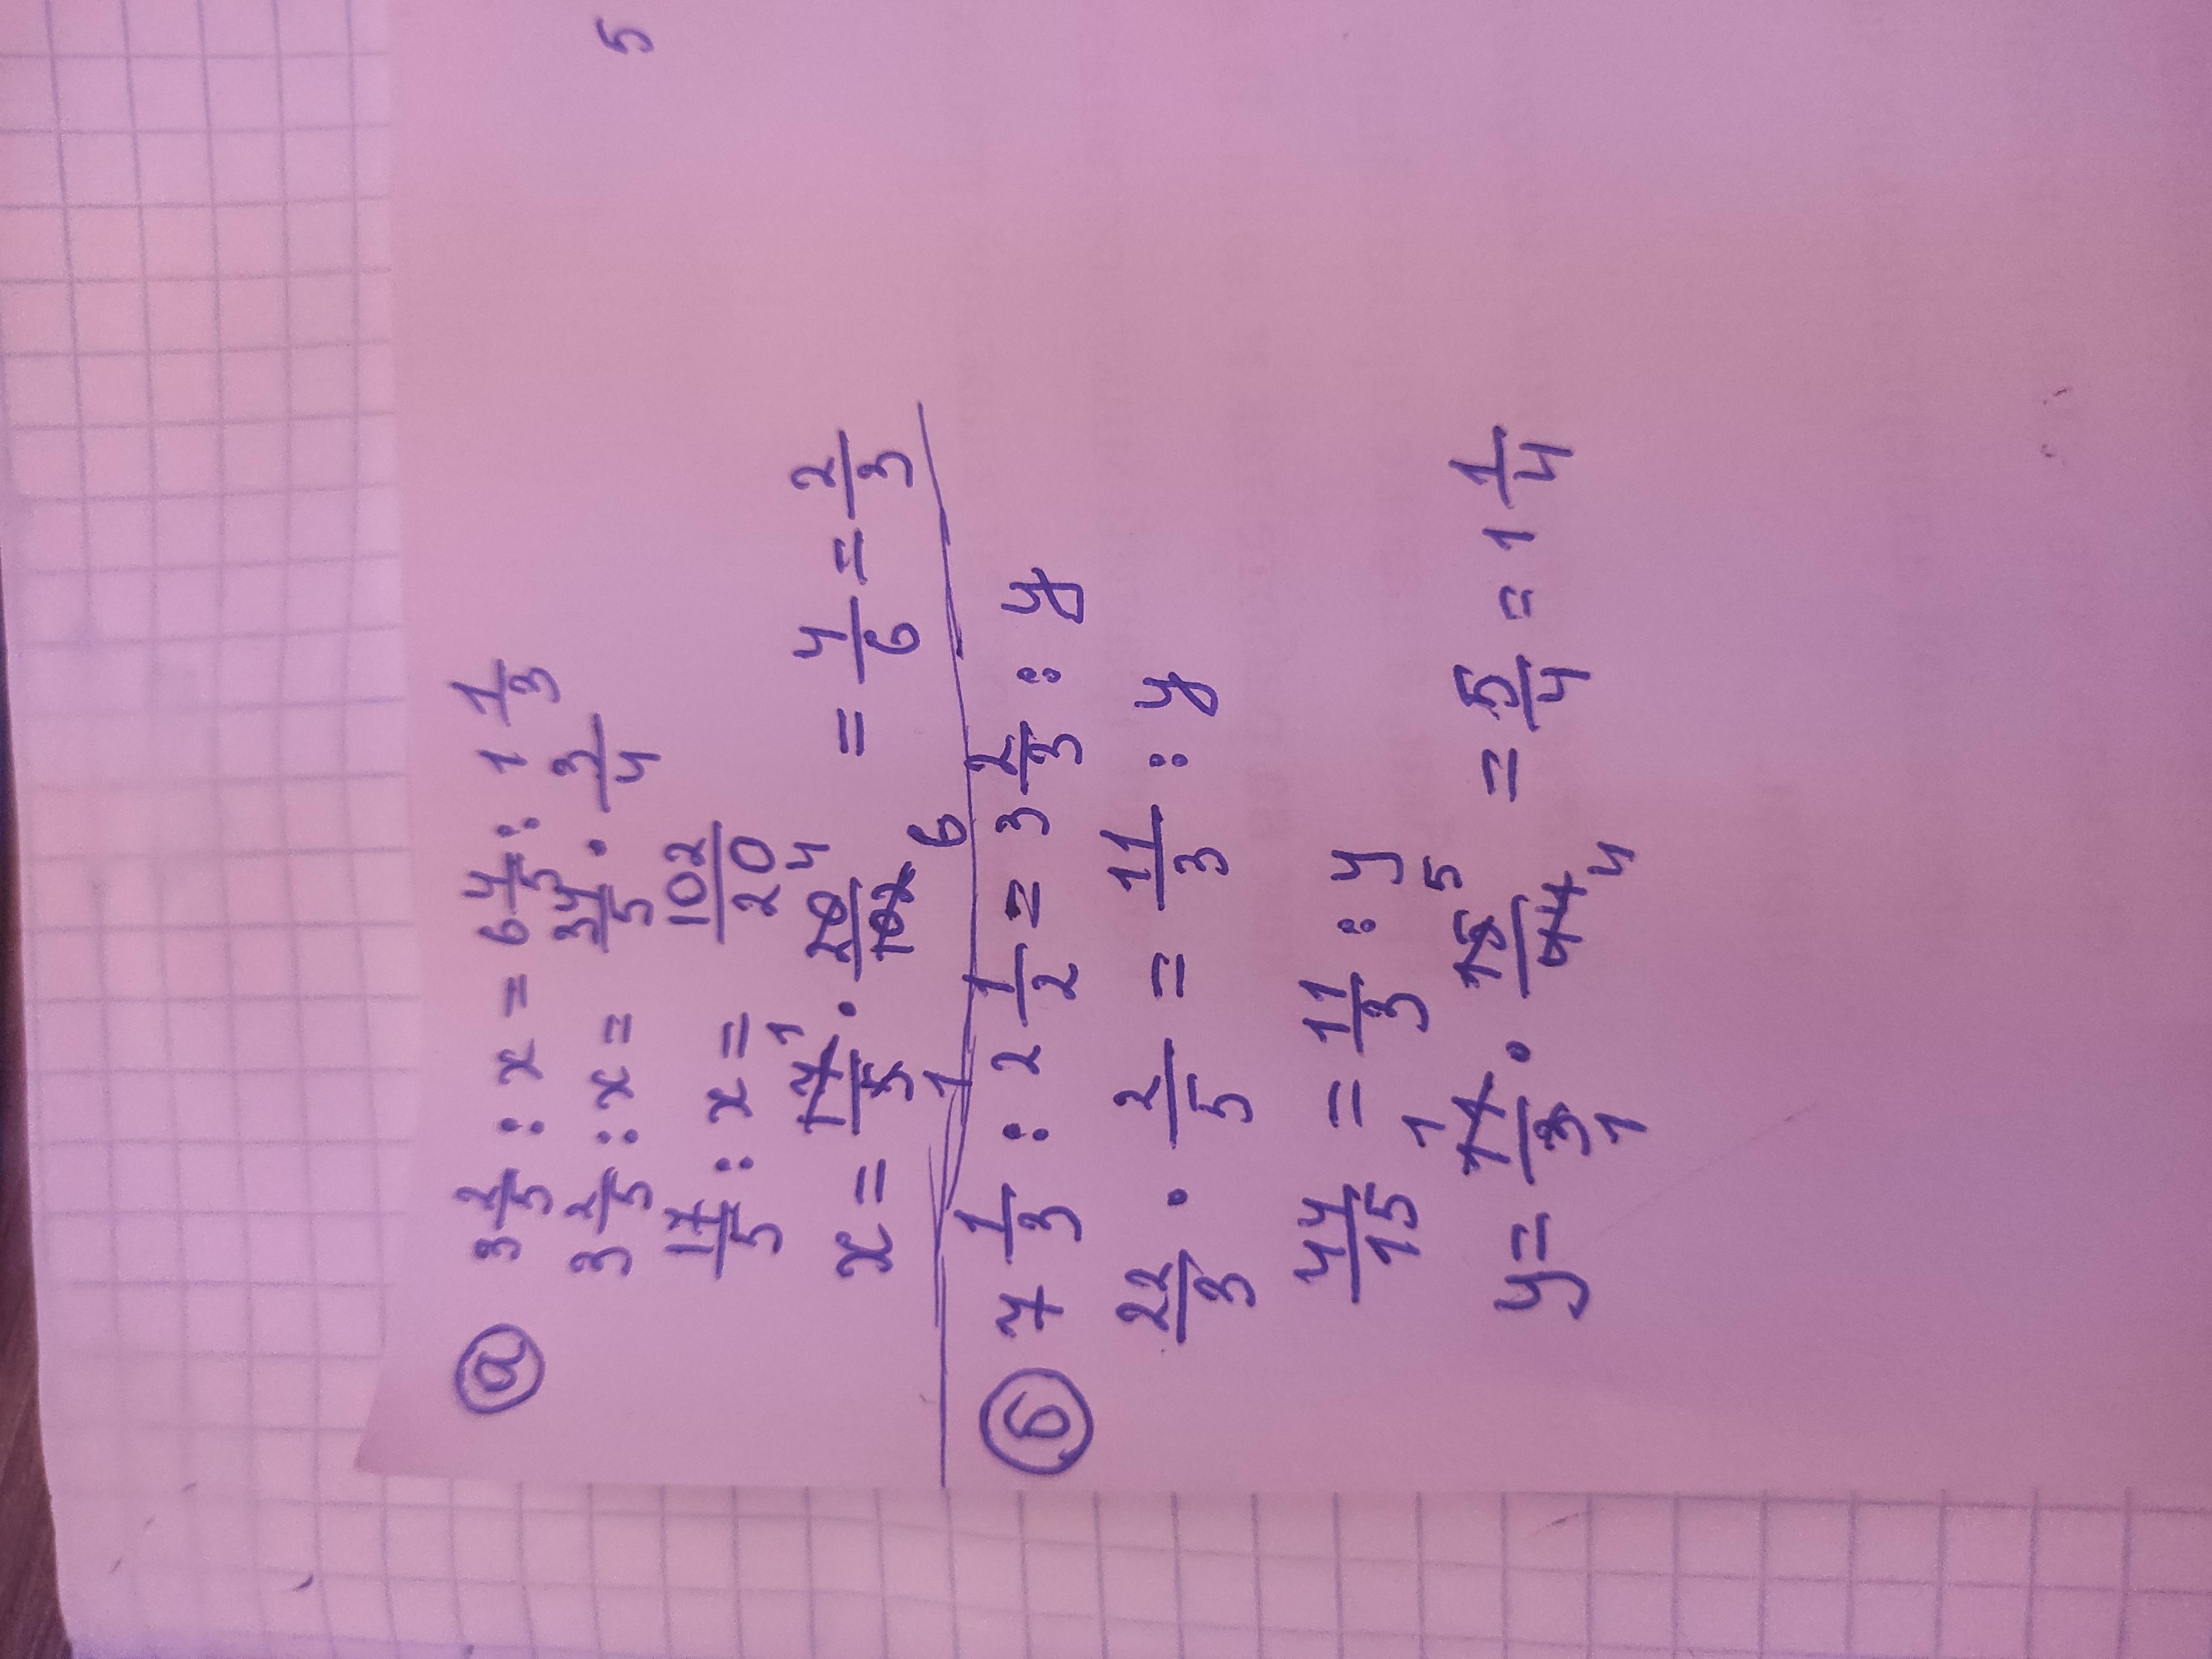 5
а 3 2/5 : x = 6 4/5 : 1 1/3
3 2/5 : x = 34/5 · 3/4
17/5 : x = 102/20
x = 17/5 · 20/102 = 4/6 = 2/3
1 1 4 6
б 7 1/3 : 2 1/2 = 3 2/3 : y
22/3 · 2/5 = 11/3 : y
44/15 = 11/3 : y
y = 11/3 · 15/44 = 5/4 = 1 1/4
1 1 5 4